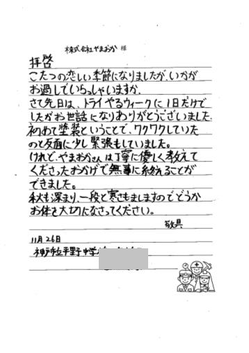 株式会社やまおか 様
拝啓
こたつの恋しい季節になりましたが、いかが
お過しでいらっしゃいますか。
さて先日は、トライやるウィークに1日だけで
したがお世話になりありがとうございました。
初めて塗装ということで、ワクワクしていた
のと反面に少し緊張もしていました。
けれど、やまおかさんは丁寧に優しく教えて
くださったおかげで無事に終わることが
できました。
秋も深まり、一段と寒さもましますのでどうか
お体を大切になさってください。
敬具
11月26日
神戸市立平野中学